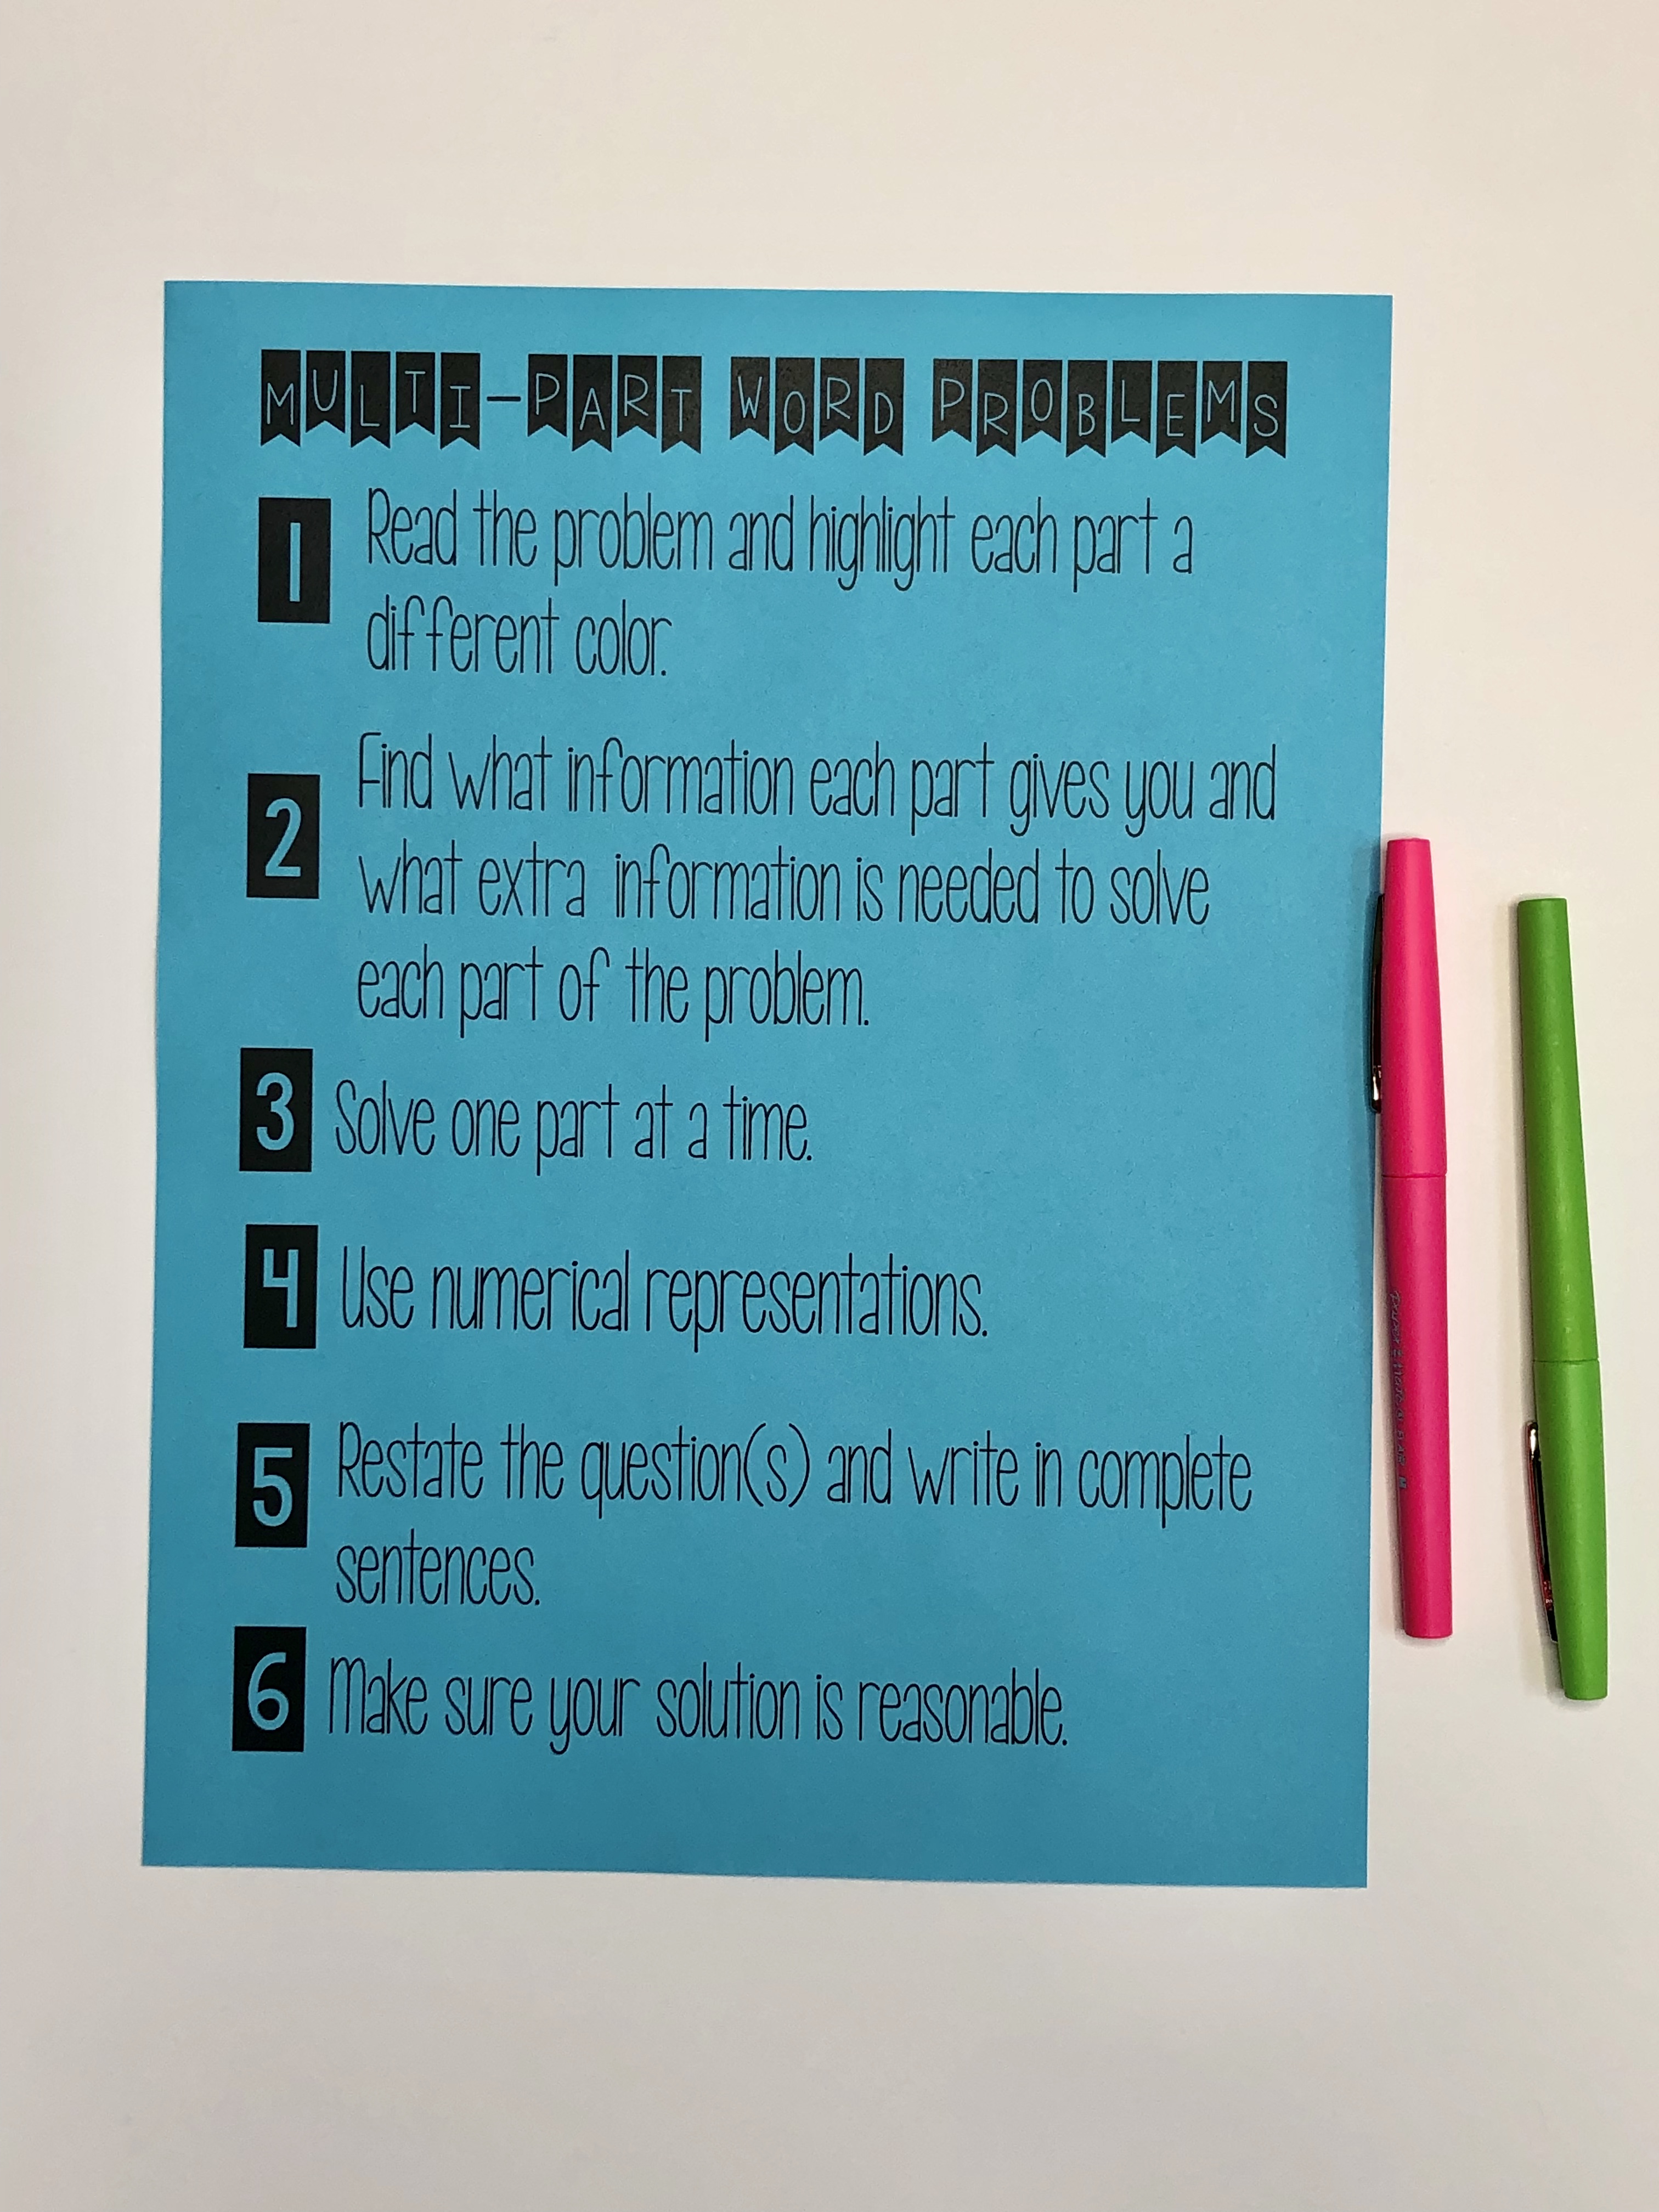 MULTI-PART WORD PROBLEMS
1 Read the problem and highlight each part a
different color.
2 Find what information each part gives you and
what extra information is needed to solve
each part of the problem.
3 Solve one part at a time.
4 Use numerical representations.
5 Restate the question(s) and write in complete
sentences.
6 Make sure your solution is reasonable.